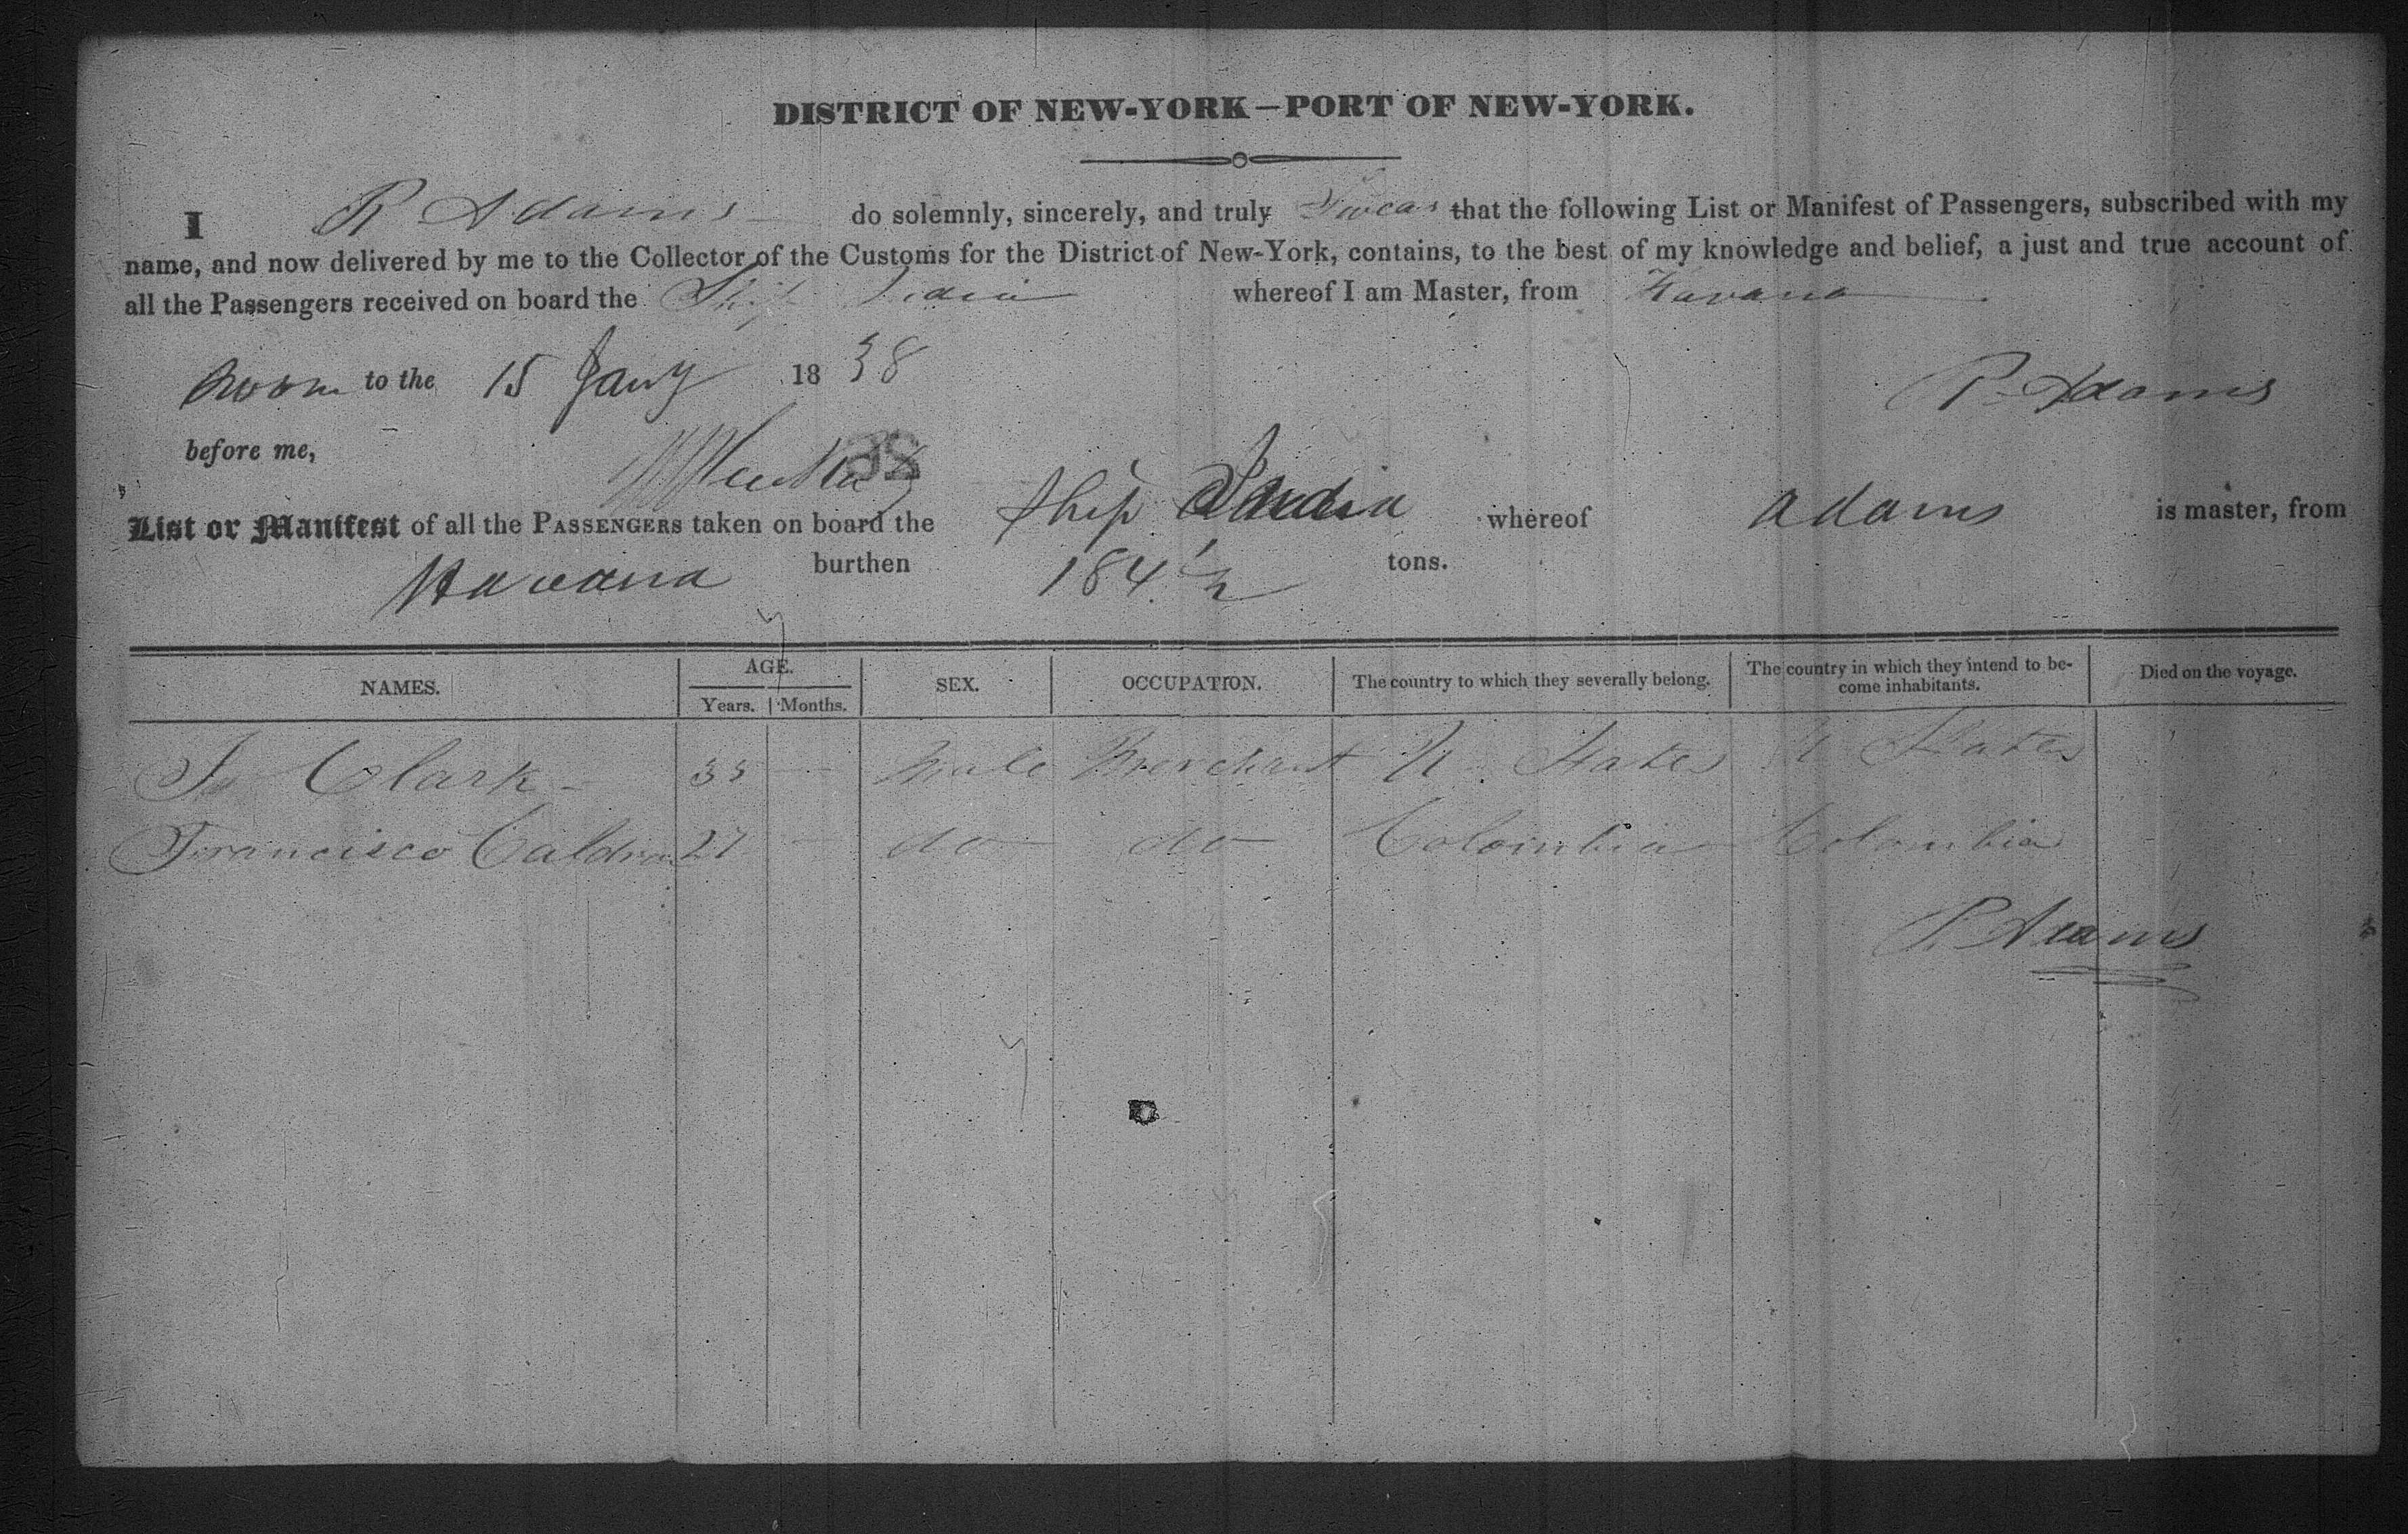 DISTRICT OF NEW-YORK—PORT OF NEW-YORK.
I R Adams do solemnly, sincerely, and truly Swear that the following List or Manifest of Passengers, subscribed with my
name, and now delivered by me to the Collector of the Customs for the District of New-York, contains, to the best of my knowledge and belief, a just and true account of
all the Passengers received on board the Ship India whereof I am Master, from Havana
Sworn to the 15 Jany 1838 R Adams
before me,
List or Manifest of all the PASSENGERS taken on board the Ship India whereof Adams is master, from
Havana burthen 184 1/2 tons.
NAMES. AGE. Years. Months. SEX. OCCUPATION. The country to which they severally belong. The country in which they intend to become inhabitants. Died on the voyage.
Clark 35 Male Merchant U States U States
Francisco 27 do do Colombia Colombia
R Adams